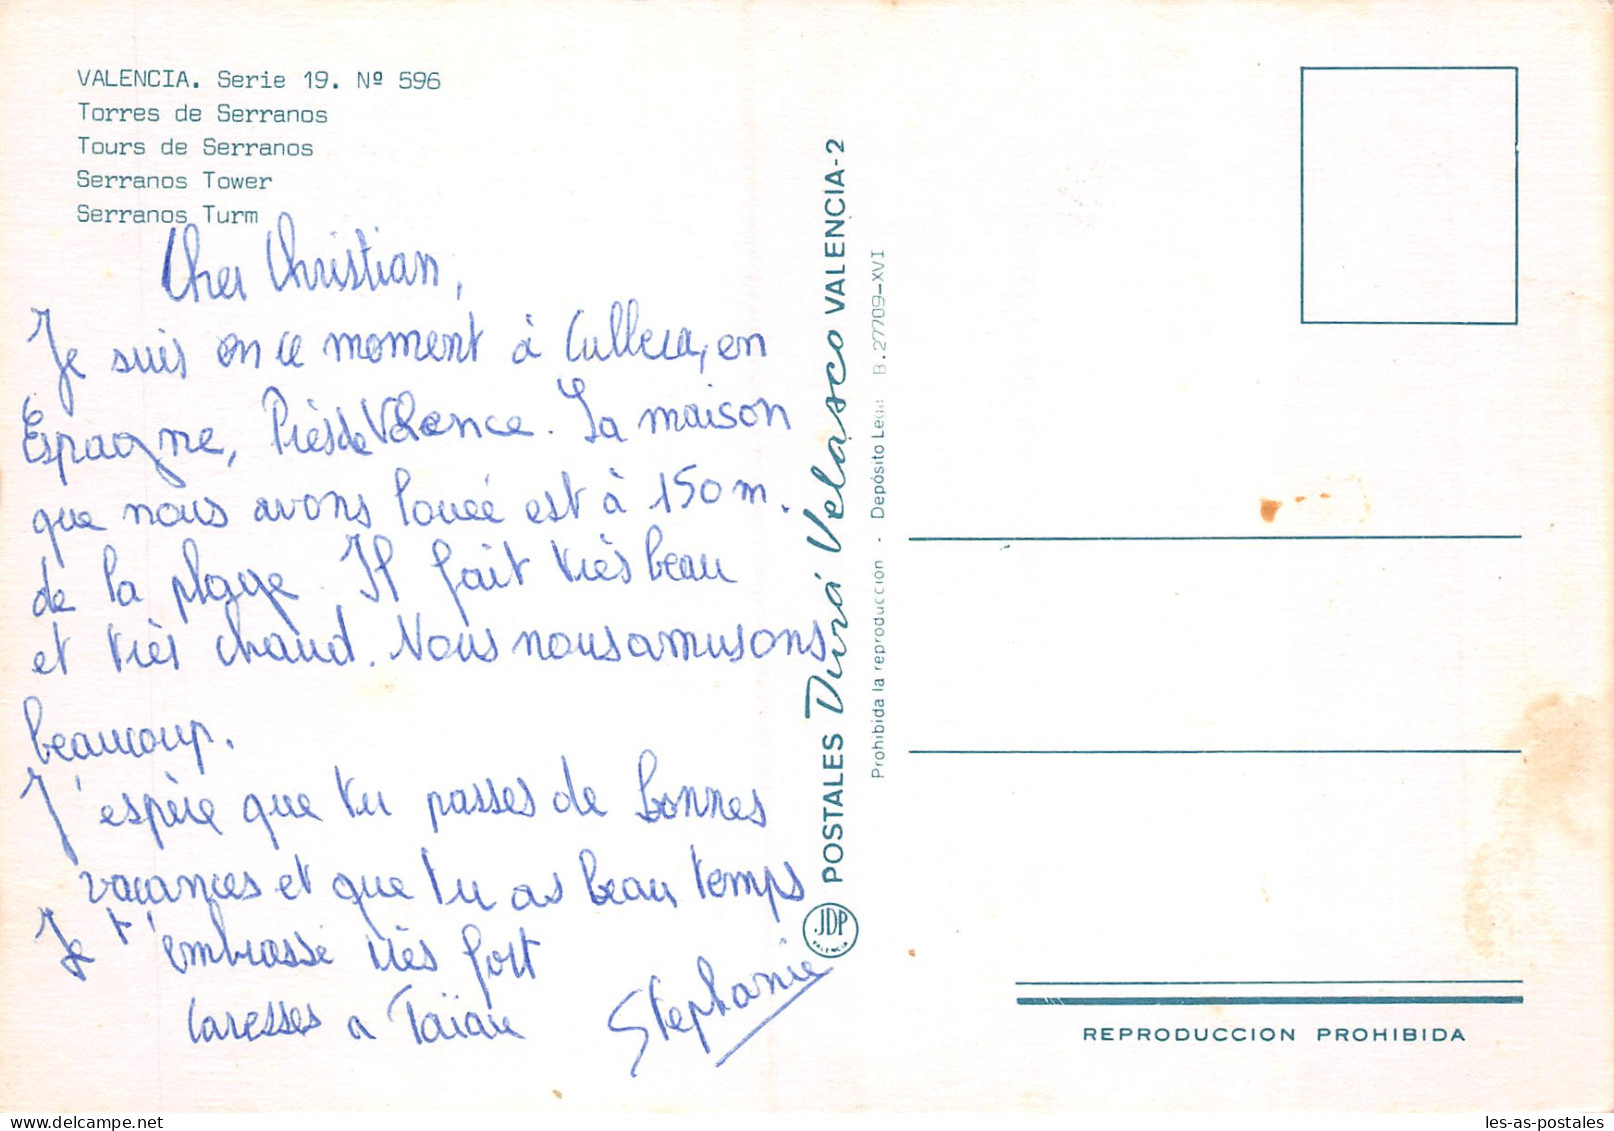 VALENCIA. Serie 19. Nº 596
Torres de Serranos
Tours de Serranos
Serranos Tower
Serranos Turm
Cher Christian,
Je suis en ce moment à Cullera, en
Espagne, Près de Valence. La maison
que nous avons louée est à 150 m.
de la plage. Il fait très beau
et très chaud. Nous nous amusons
beaucoup.
J'espère que tu passes de bonnes
vacances et que tu as beau temps
Je t'embrasse très fort
Caresses a Taïau
Stephanie
POSTALES Durá Velasco VALENCIA-2
JDP
VALENCIA
Prohibida la reproducción - Depósito Legal B.27709-XVI
REPRODUCCION PROHIBIDA
les-as-postales